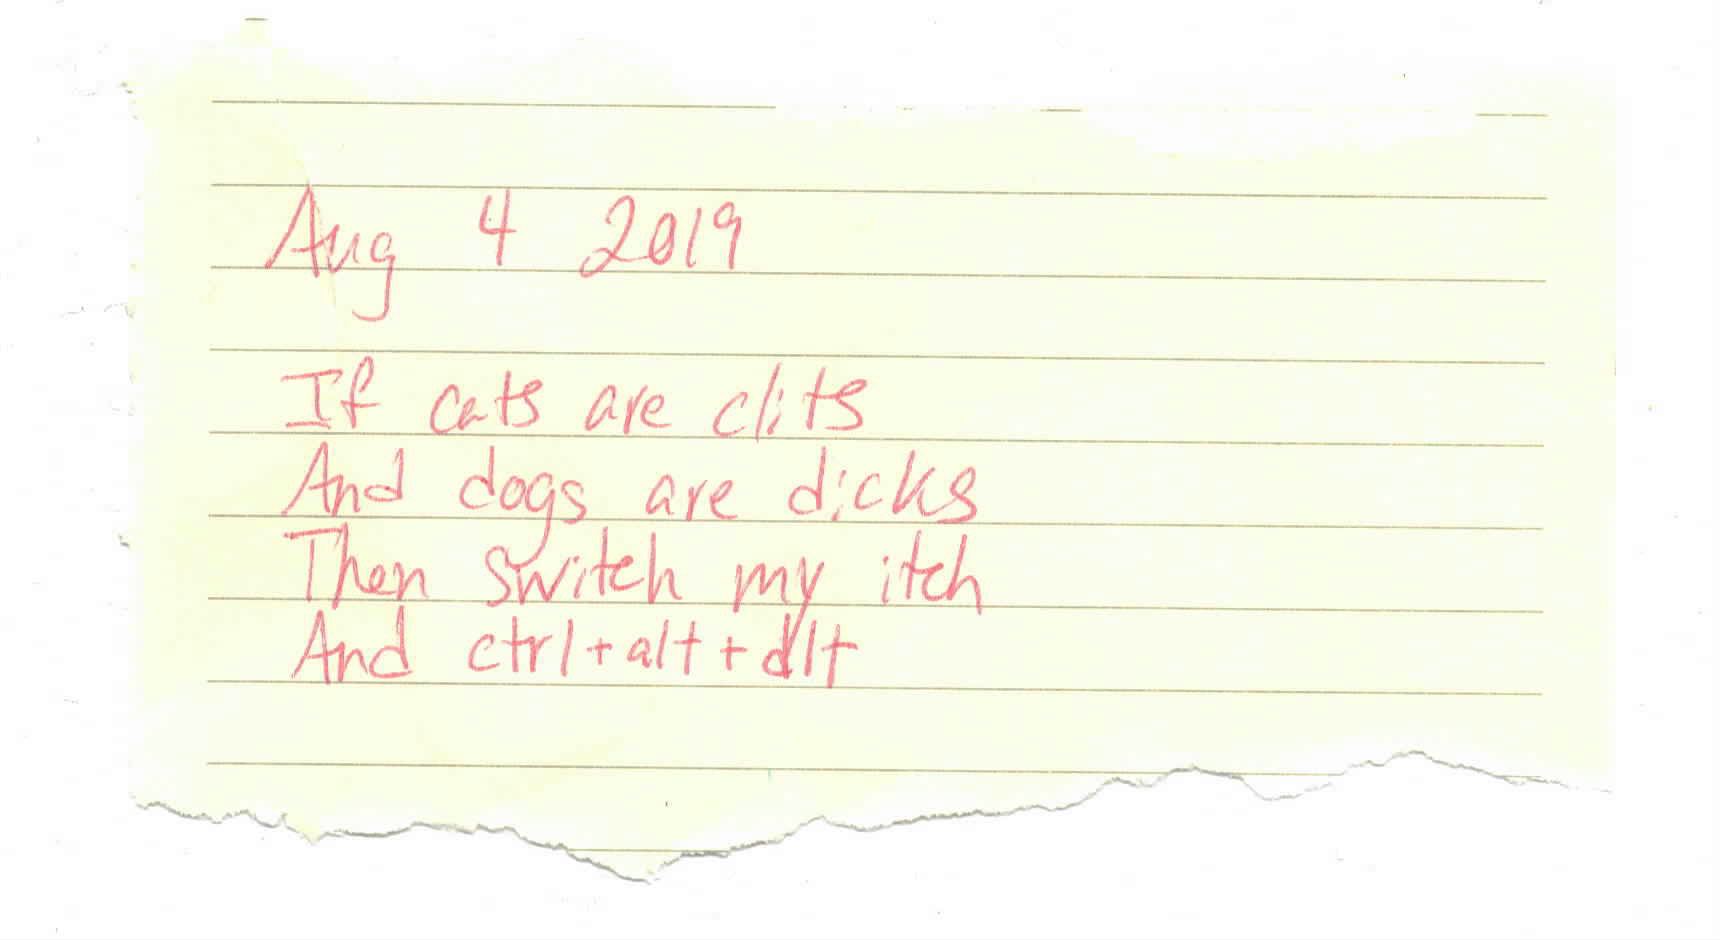 Aug 4 2019
If cats are clits
And dogs are dicks
Then switch my itch
And ctrl+alt+dlt